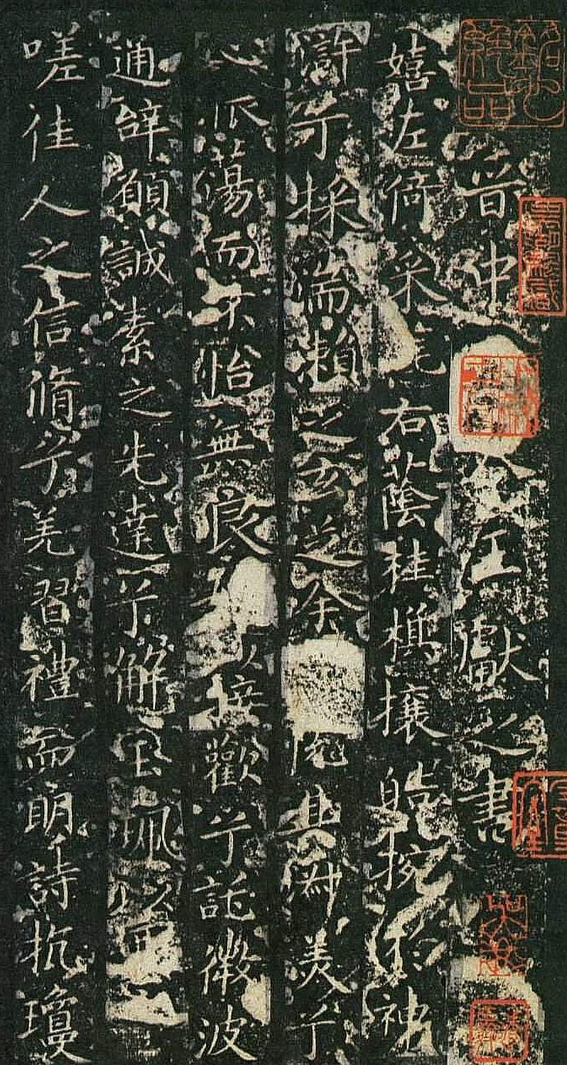 銘心絕品
晉中令王獻之書
嬉左倚采旄右蔭桂旗攘皓捥於神
滸兮採湍瀨之玄芝余悅其淑美兮
心振蕩而不怡無良以接歡兮託微波
通辭願誠素之先達兮解玉珮以要
嗟佳人之信脩兮羌習禮而明詩抗瓊